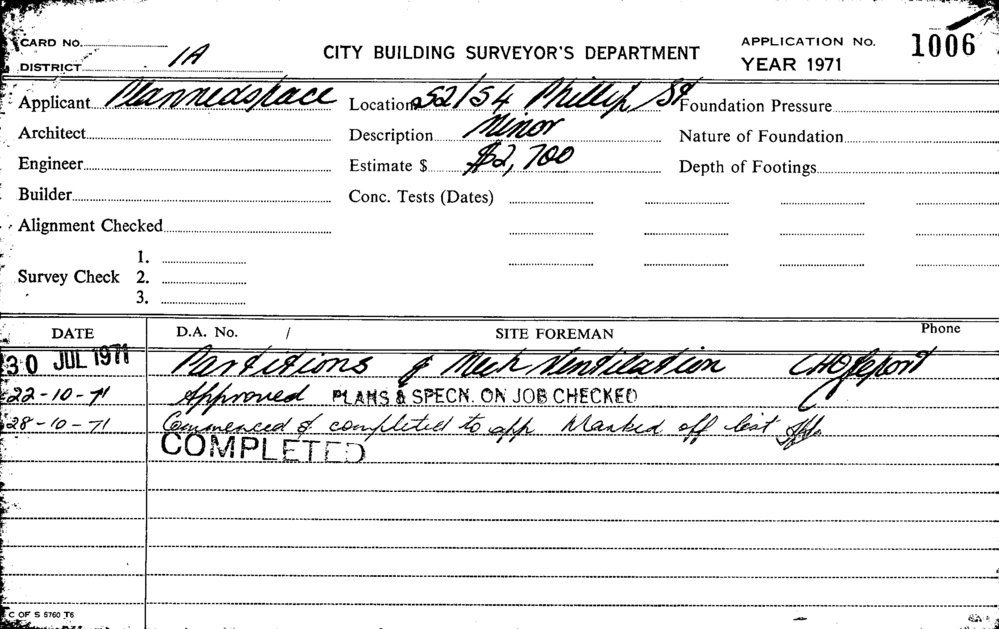 CARD NO.
DISTRICT 1A
CITY BUILDING SURVEYOR'S DEPARTMENT
APPLICATION No. 1006
YEAR 1971
Applicant Plannedspace Location 52/54 Phillip St Foundation Pressure
Architect Description Minor Nature of Foundation
Engineer Estimate $ $2,700 Depth of Footings
Builder Conc. Tests (Dates)
Alignment Checked
1.
Survey Check 2.
3.
DATE D.A. No. / SITE FOREMAN Phone
30 JUL 1971 Partitions & Mech Ventilation CHO report
22-10-71 Approved PLANS & SPECN. ON JOB CHECKED
28-10-71 Commenced & completed to app Marked off list
COMPLETED
C OF S 5760 T6